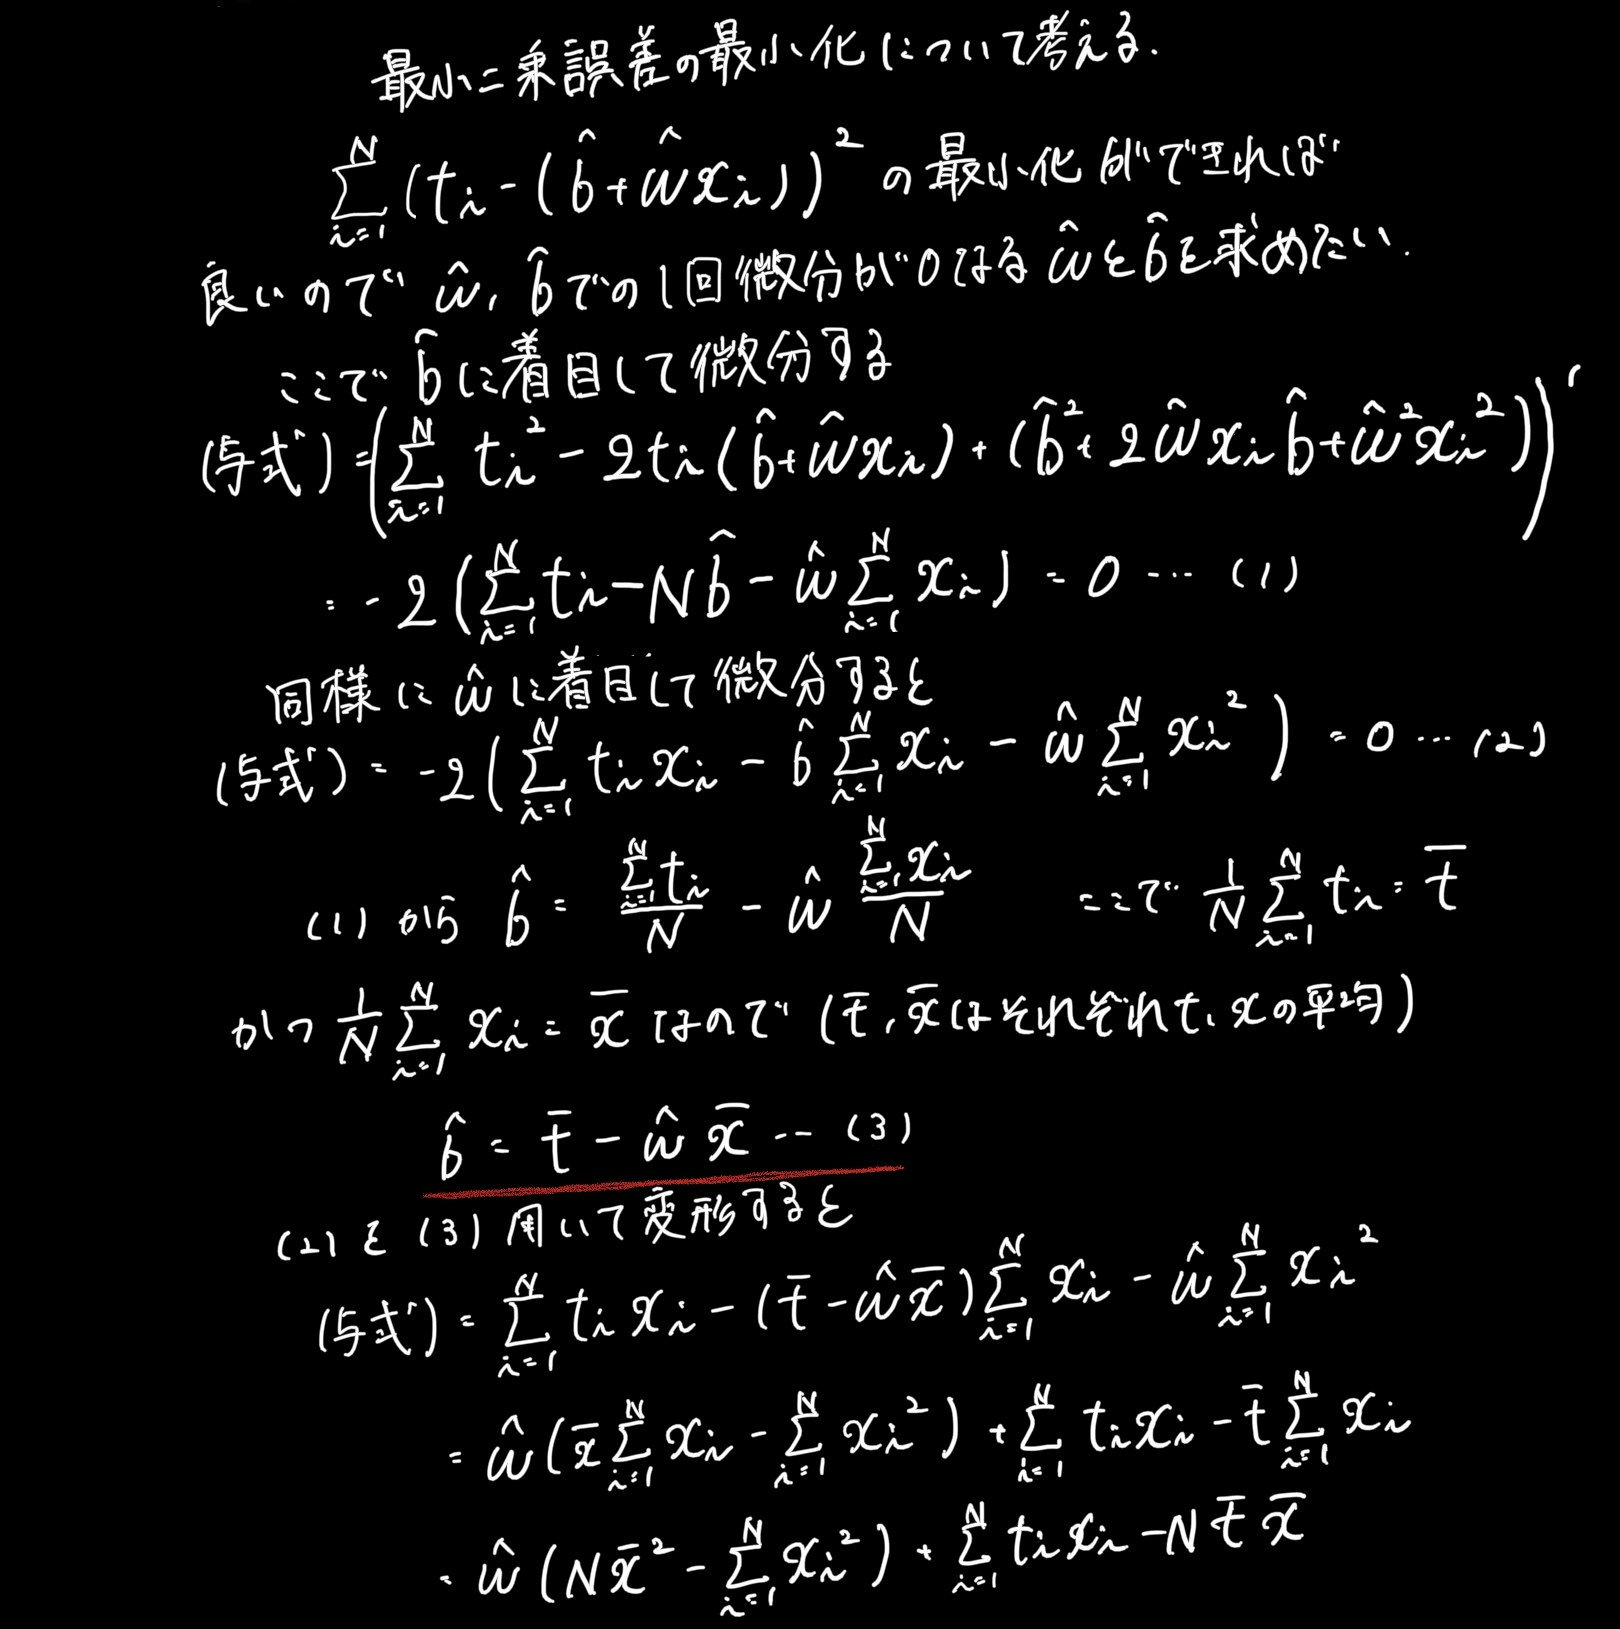 最小二乗誤差の最小化について考える.
\sum_{i=1}^{N} (t_i - (\hat{b} + \hat{w}x_i))^2 の最小化ができれば
良いので \hat{w}, \hat{b}での1回微分が0なる \hat{w}と\hat{b}を求めたい.
ここで \hat{b}に着目して微分する
(与式) = (\sum_{i=1}^{N} t_i^2 - 2t_i(\hat{b} + \hat{w}x_i) + (\hat{b}^2 + 2\hat{w}x_i\hat{b} + \hat{w}^2x_i^2))'
= -2(\sum_{i=1}^{N} t_i - N\hat{b} - \hat{w}\sum_{i=1}^{N} x_i) = 0 … (1)
同様に \hat{w}に着目して微分すると
(与式) = -2(\sum_{i=1}^{N} t_i x_i - \hat{b}\sum_{i=1}^{N} x_i - \hat{w}\sum_{i=1}^{N} x_i^2) = 0 … (2)
(1)から \hat{b} = \frac{\sum_{i=1}^{N} t_i}{N} - \hat{w}\frac{\sum_{i=1}^{N} x_i}{N} ここで \frac{1}{N}\sum_{i=1}^{N} t_i = \bar{t}
かつ \frac{1}{N}\sum_{i=1}^{N} x_i = \bar{x} なので (\bar{t}, \bar{x}はそれぞれt, xの平均)
\hat{b} = \bar{t} - \hat{w}\bar{x} … (3)
(2)を(3)用いて変形すると
(与式) = \sum_{i=1}^{N} t_i x_i - (\bar{t} - \hat{w}\bar{x})\sum_{i=1}^{N} x_i - \hat{w}\sum_{i=1}^{N} x_i^2
= \hat{w}(\bar{x}\sum_{i=1}^{N} x_i - \sum_{i=1}^{N} x_i^2) + \sum_{i=1}^{N} t_i x_i - \bar{t}\sum_{i=1}^{N} x_i
= \hat{w}(N\bar{x}^2 - \sum_{i=1}^{N} x_i^2) + \sum_{i=1}^{N} t_i x_i - N\bar{t}\bar{x}